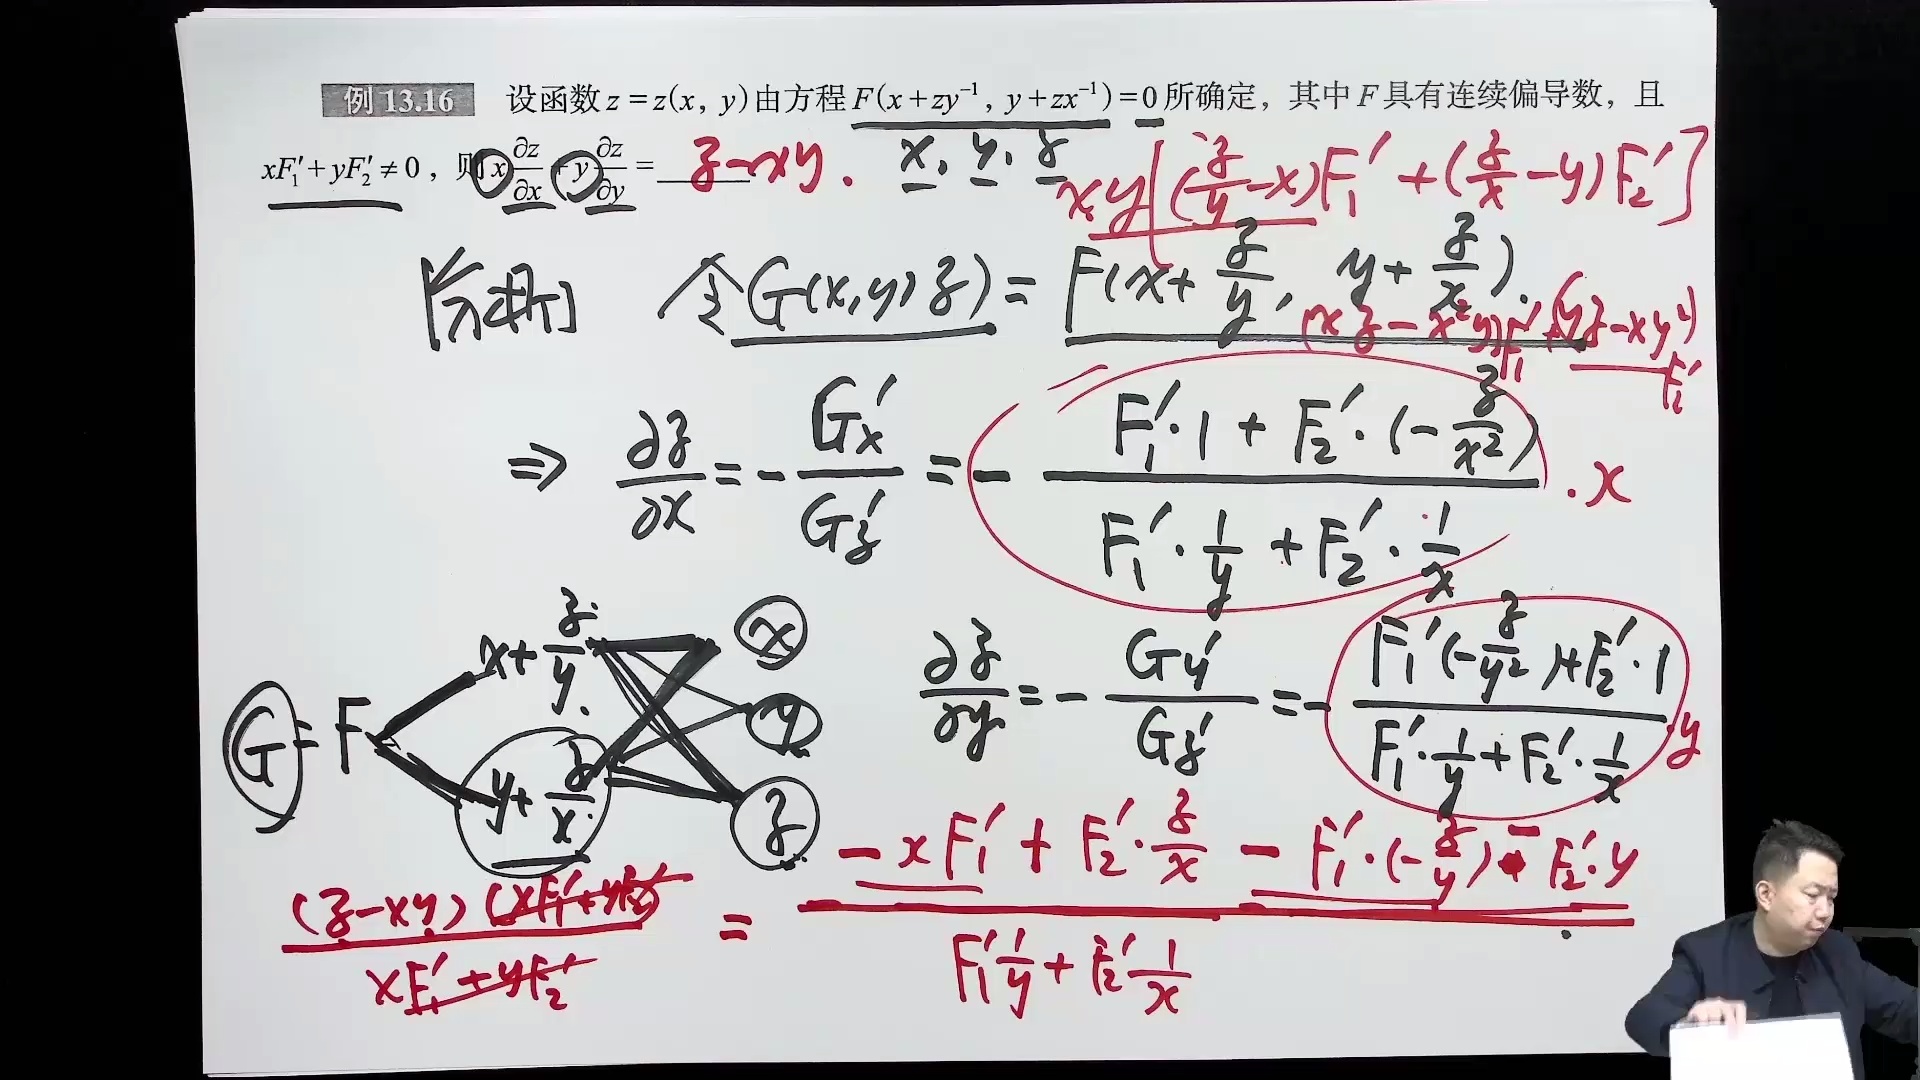 例 13.16 设函数 z = z(x, y) 由方程 F(x + zy⁻¹, y + zx⁻¹) = 0 所确定，其中 F 具有连续偏导数，且
xF₁′ + yF₂′ ≠ 0，则 x ∂z/∂x + y ∂z/∂y = z - xy.
x, y, z
xy[(z/y - x)F₁′ + (z/x - y)F₂′]
[分析] 令 G(x, y, z) = F(x + z/y, y + z/x).
(xz - x²y)F₁′ + (yz - xy²)F₂′
⇒ ∂z/∂x = - Gx′/Gz′ = - (F₁′·1 + F₂′·(-z/x²))/(F₁′·1/y + F₂′·1/x) · x
∂z/∂y = - Gy′/Gz′ = - (F₁′(-z/y²) + F₂′·1)/(F₁′·1/y + F₂′·1/x) · y
G = F
x + z/y
y + z/x
x
y
z
= (-xF₁′ + F₂′·z/x - F₁′·(-z/y) - F₂′·y)/(F₁′ 1/y + F₂′ 1/x)
(z - xy)(xF₁′ + yF₂′)/(xF₁′ + yF₂′)